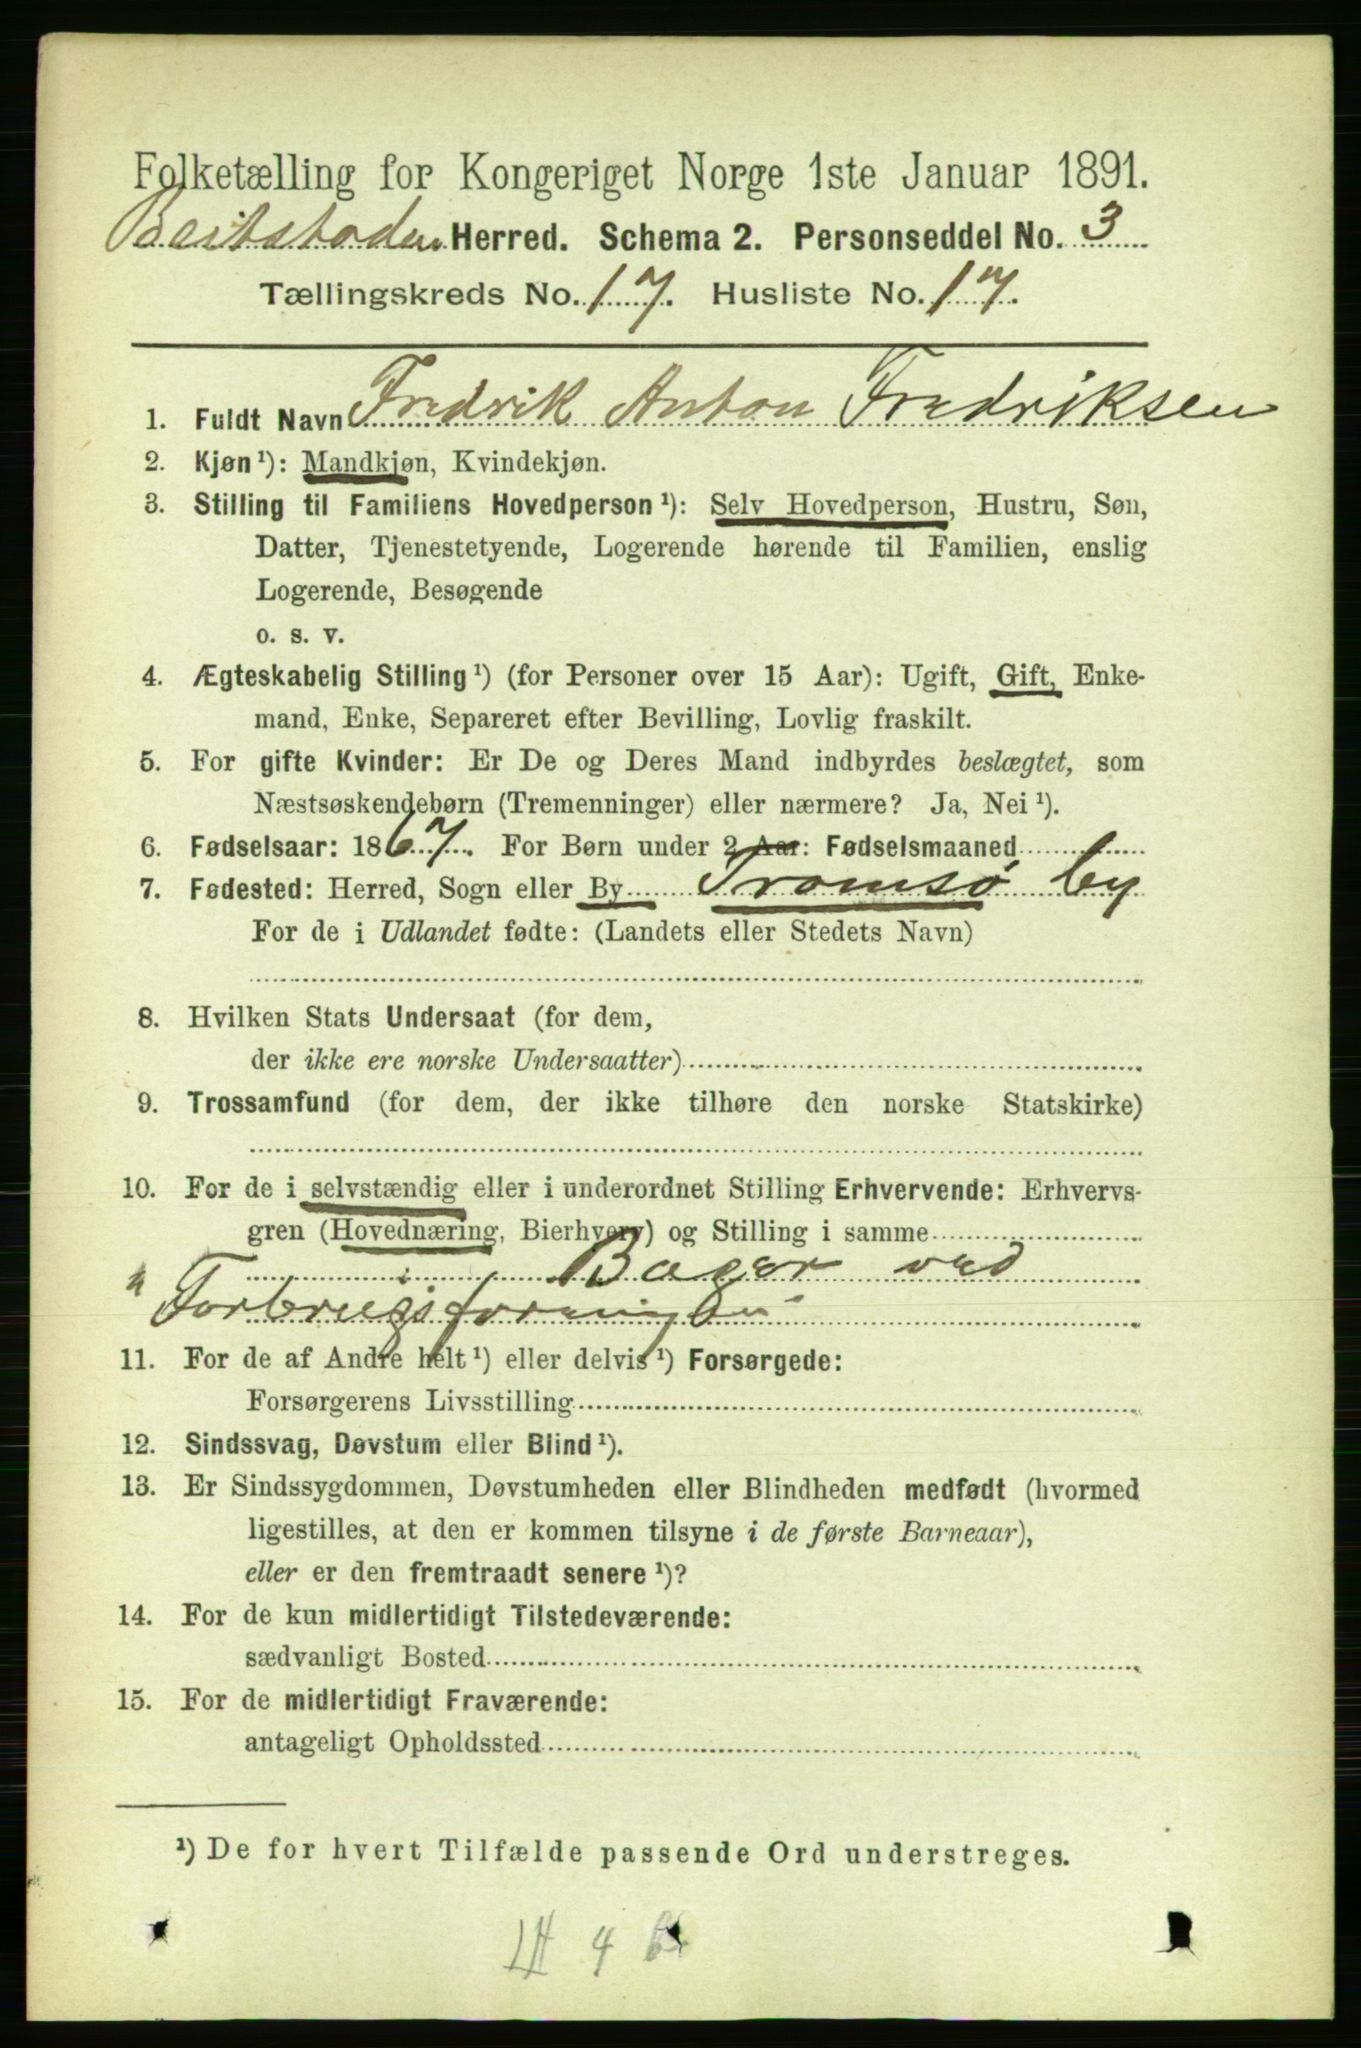 Folketælling for Kongeriget Norge 1ste Januar 1891.
Beitstaden Herred. Schema 2. Personseddel No. 3
Tællingskreds No. 17. Husliste No. 17.
1. Fuldt Navn Fredrik Anton Fredriksen
2. Kjøn¹): Mandkjøn, Kvindekjøn.
3. Stilling til Familiens Hovedperson¹): Selv Hovedperson, Hustru, Søn,
Datter, Tjenestetyende, Logerende hørende til Familien, enslig
Logerende, Besøgende
o. s. v.
4. Ægteskabelig Stilling¹) (for Personer over 15 Aar): Ugift, Gift, Enke-
mand, Enke, Separeret efter Bevilling, Lovlig fraskilt.
5. For gifte Kvinder: Er De og Deres Mand indbyrdes beslægtet, som
Næstsøskendebørn (Tremenninger) eller nærmere? Ja, Nei¹).
6. Fødselsaar: 1867. For Børn under 2 Aar: Fødselsmaaned
7. Fødested: Herred, Sogn eller By Tromsø by
For de i Udlandet fødte: (Landets eller Stedets Navn)
8. Hvilken Stats Undersaat (for dem,
der ikke ere norske Undersaatter)
9. Trossamfund (for dem, der ikke tilhøre den norske Statskirke)
10. For de i selvstændig eller i underordnet Stilling Erhvervende: Erhvervs-
gren (Hovednæring, Bierhverv) og Stilling i samme
Bager ved
Forbrugsforeningen
11. For de af Andre helt¹) eller delvis¹) Forsørgede:
Forsørgerens Livsstilling
12. Sindssvag, Døvstum eller Blind¹).
13. Er Sindssygdommen, Døvstumheden eller Blindheden medfødt (hvormed
ligestilles, at den er kommen tilsyne i de første Barneaar),
eller er den fremtraadt senere¹)?
14. For de kun midlertidigt Tilstedeværende:
sædvanligt Bosted
15. For de midlertidigt Fraværende:
antageligt Opholdssted
¹) De for hvert Tilfælde passende Ord understreges.
4